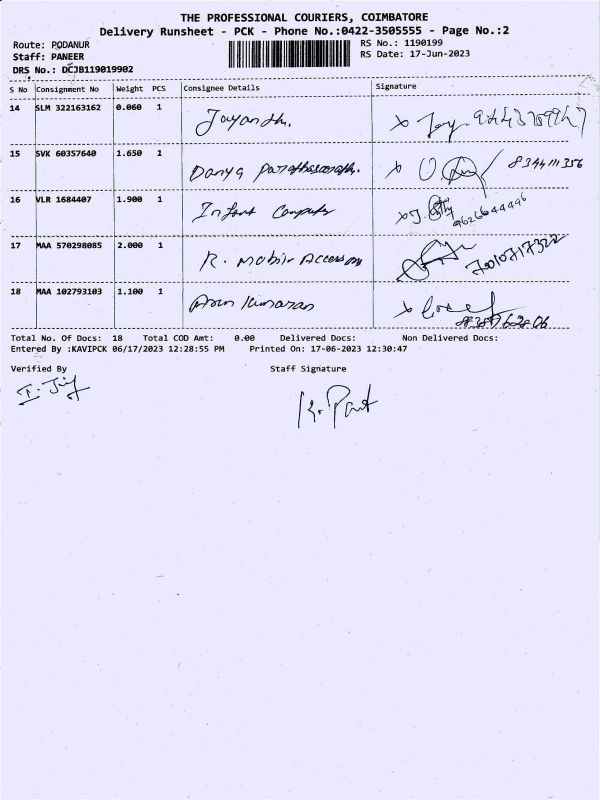 THE PROFESSIONAL COURIERS, COIMBATORE
Delivery Runsheet - PCK - Phone No.:0422-3505555 - Page No.:2
Route: PODANUR RS No.: 1190199
Staff: PANEER RS Date: 17-Jun-2023
DRS No.: DCJB119019902
S No Consignment No Weight PCS Consignee Details Signature
14 SLM 322163162 0.060 1 Jayandhi.
15 SVK 60357640 1.650 1 Danya 8344111356
16 VLR 1684407 1.900 1 Infant Computer 9626644496
17 MAA 570298085 2.000 1 R. Mobir 7010717322
18 MAA 102793103 1.100 1 Arun Kumaran
Total No. Of Docs: 18 Total COD Amt: 0.00 Delivered Docs: Non Delivered Docs:
Entered By :KAVIPCK 06/17/2023 12:28:55 PM Printed On: 17-06-2023 12:30:47
Verified By Staff Signature